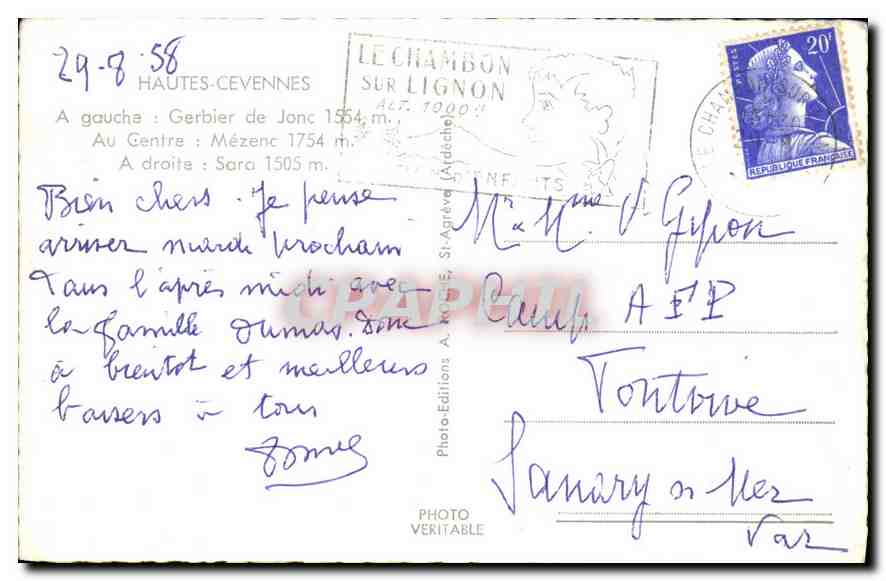 29-8-58
HAUTES-CEVENNES
A gauche : Gerbier de Jonc 1554 m.
Au Centre : Mézenc 1754 m.
A droite : Sara 1505 m.
Bien chers. Je pense
arriver mardi prochain
dans l'après midi avec
la famille Dumas. Donc
à bientot et meilleurs
baisers à tous
LE CHAMBON
SUR LIGNON
ALT. 1000 m
D'ENFANTS
LE CHAMBON SUR
20F
POSTES
REPUBLIQUE FRANÇAISE
Photo-Editions A. ROCHE, St-Agrève (Ardèche)
PHOTO
VERITABLE
Mr & Mme V
Camp
Sanary s/ Mer
Var
CPAPHIL